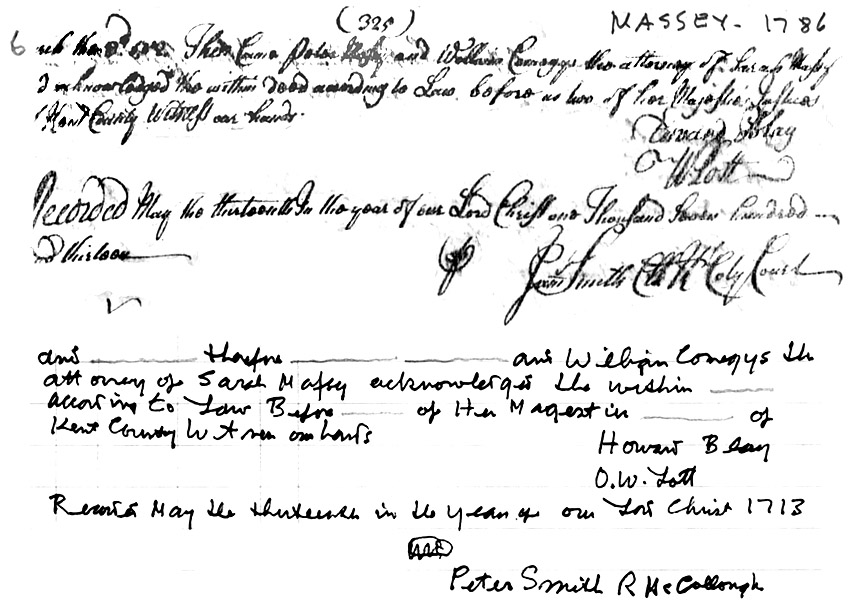 (325)
MASSEY - 1786
6
Then Came Peter Massey and William Comegys the attorney of Sarah Massy
acknowledged the within deed according to Law before us two of her Majesties Justices
Kent County Witness our hands.
Blay
W Lott
Recorded May the thirteenth In the year of our Lord Christ one Thousand Seven hundred
nd thirteen
Smith Clk Coty Court
and therefore and William Comegys the
attorney of Sarah Massey acknowledges the within
according to Law Before of Her Magest in of
Kent County
Howard Blay
O.W. Lott
May the thirteenth in the year of our Lord Christ 1713
Peter Smith R McCollough